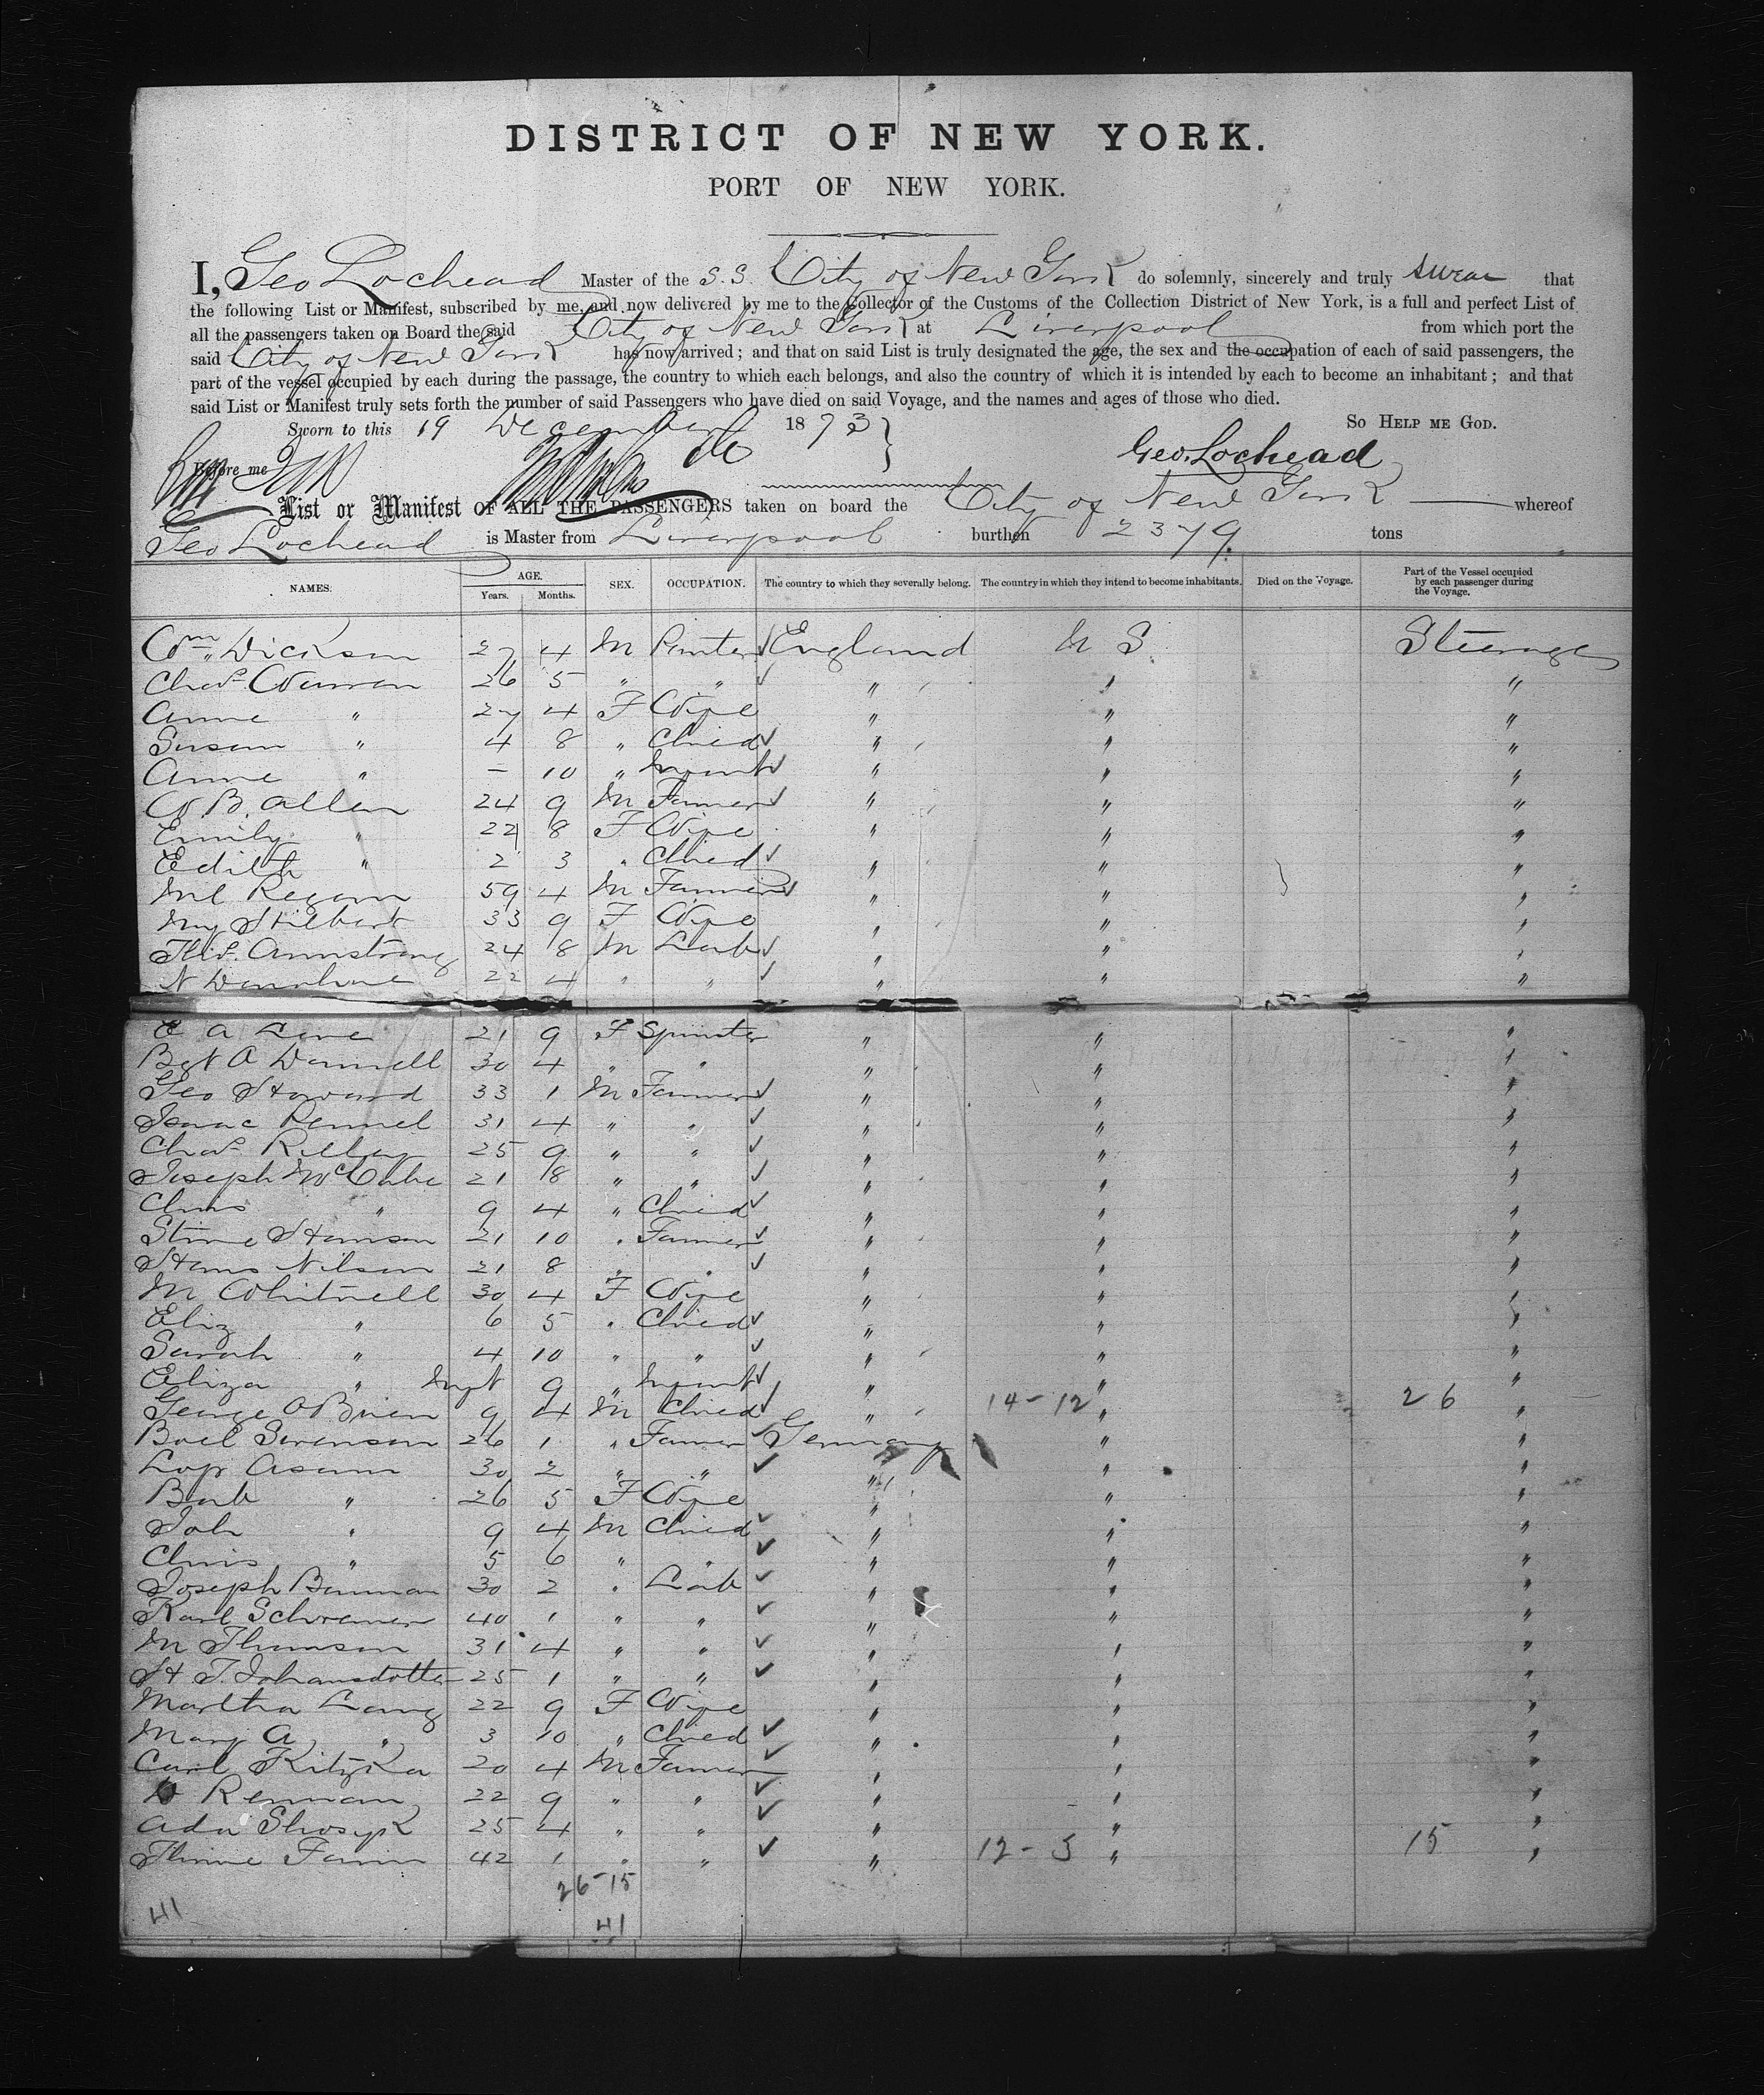 DISTRICT OF NEW YORK.
PORT OF NEW YORK.
I, Geo Lochead Master of the S.S. City of New York do solemnly, sincerely and truly swear that
the following List or Manifest, subscribed by me, and now delivered by me to the Collector of the Customs of the Collection District of New York, is a full and perfect List of
all the passengers taken on Board the said City of New York at Liverpool from which port the
said City of New York has now arrived; and that on said List is truly designated the age, the sex and the occupation of each of said passengers, the
part of the vessel occupied by each during the passage, the country to which each belongs, and also the country of which it is intended by each to become an inhabitant; and that
said List or Manifest truly sets forth the number of said Passengers who have died on said Voyage, and the names and ages of those who died.
Sworn to this 19 December 1873 So Help me God.
Before me Geo. Lochead
List or Manifest OF ALL THE PASSENGERS taken on board the City of New York whereof
Geo Lochead is Master from Liverpool burthen 2379 tons
NAMES. AGE. Years. Months. SEX. OCCUPATION. The country to which they severally belong. The country in which they intend to become inhabitants. Died on the Voyage. Part of the Vessel occupied by each passenger during the Voyage.
Wm Dickson 27 4 M Painter England U S Steerage
Chas Warren 26 5 " " " " "
Anne " 27 4 F Wife " " "
Susan " 4 8 " Child " " "
Anne " – 10 " Infant " " "
W B. Allen 24 9 M Farmer " " "
Emily " 22 8 F Wife " " "
Edith " 2 3 " Child " " "
Ml Regan 59 4 M Farmer " " "
My Hilbert 33 9 F Wife " " "
Thos. Armstrong 24 8 M Lab " " "
N Donohue 22 4 " " " " "
E A Lane 21 9 F Spinster " " "
Bgt O Donnell 30 4 " " " " "
Geo Howard 33 1 M Farmer " " "
Isaac Rennel 31 4 " " " " "
Chas Rilley 25 9 " " " " "
Joseph McCabe 21 8 " " " " "
Chas " 9 4 " Child " " "
Stine Hanson 21 10 " Farmer " " "
Hans Nilson 21 8 " " " " "
M Whitnell 30 4 F Wife " " "
Eliz " 6 5 " Child " " "
Sarah " 4 10 " " " " "
Eliza " Inft 9 " Infant " " "
George O Brien 9 4 M Child " 14-12 " 26 "
Boel Swenson 26 1 " Farmer Germany " "
Asam 30 2 " " " " "
Barb " 26 5 F Wife " " "
Joh " 9 4 M Child " " "
Chris " 5 6 " " " " "
Joseph Bauman 30 2 " Lab " " "
Karl Schramer 40 1 " " " " "
M Thomson 31 4 " " " " "
H J. Johansdotter 25 1 " " " " "
Martha Lang 22 9 F Wife " " "
Mary A " 3 10 " Child " " "
Carl Kitzka 20 4 M Farmer " " "
Renman 22 9 " " " " "
Ada 25 4 " " " " "
42 1 " " " 12-3 " 15 "
26-15
41 41